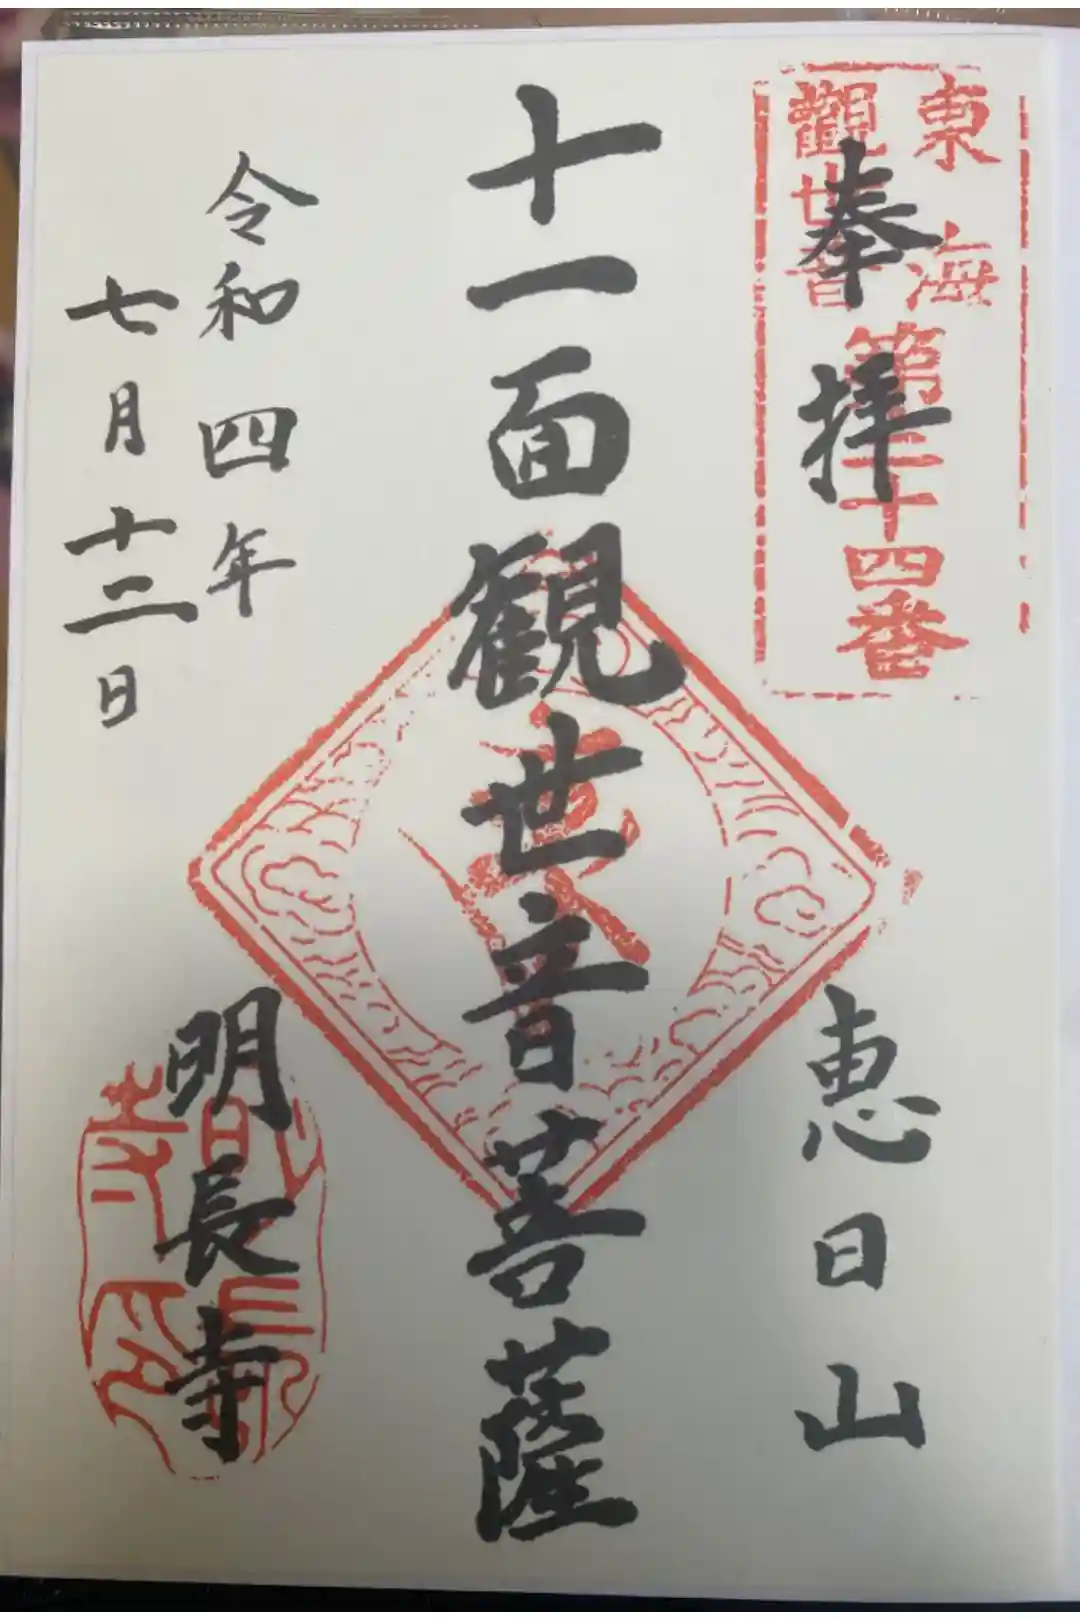 奉拝
東海
觀世音
第三十四番
恵日山
十一面観世音菩薩
令和四年
七月十二日
明長寺